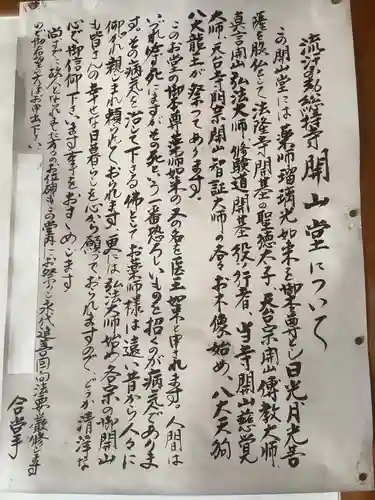 流汗動總持寺 開山堂について
この開山堂には薬師瑠璃光如来を御本尊とし日光月光菩
薩を脇仏として法隆寺開基聖徳太子、天台宗開山傳教大師、
真言開山弘法大師、修験道開基役行者、当寺開山慈覚
大師、天台寺門宗開山智証大師の各々お木像始め、八大天狗
八大龍王が祭ってあります。
このお堂の御本尊薬師如来の又の名を医王如来と申されます。人間は
いづれ皆死にますがその死という一番恐ろしいものを招くのが病気でありま
す。その病気を治して下さる佛としてお薬師様は遠い昔から人々に
仰がれ親しまれ頼られておられます。更には弘法大師始め各宗の御開山
も皆さんの幸せな日暮らしを心から願っておられますので、どうか清浄な
心で御信仰下さいます事をおすすめします
尚すでに故人となられました方々のお位牌もこの堂内にお祭りし永代追善回向法要厳修します
の御希望の方はお申出下さい。
合掌